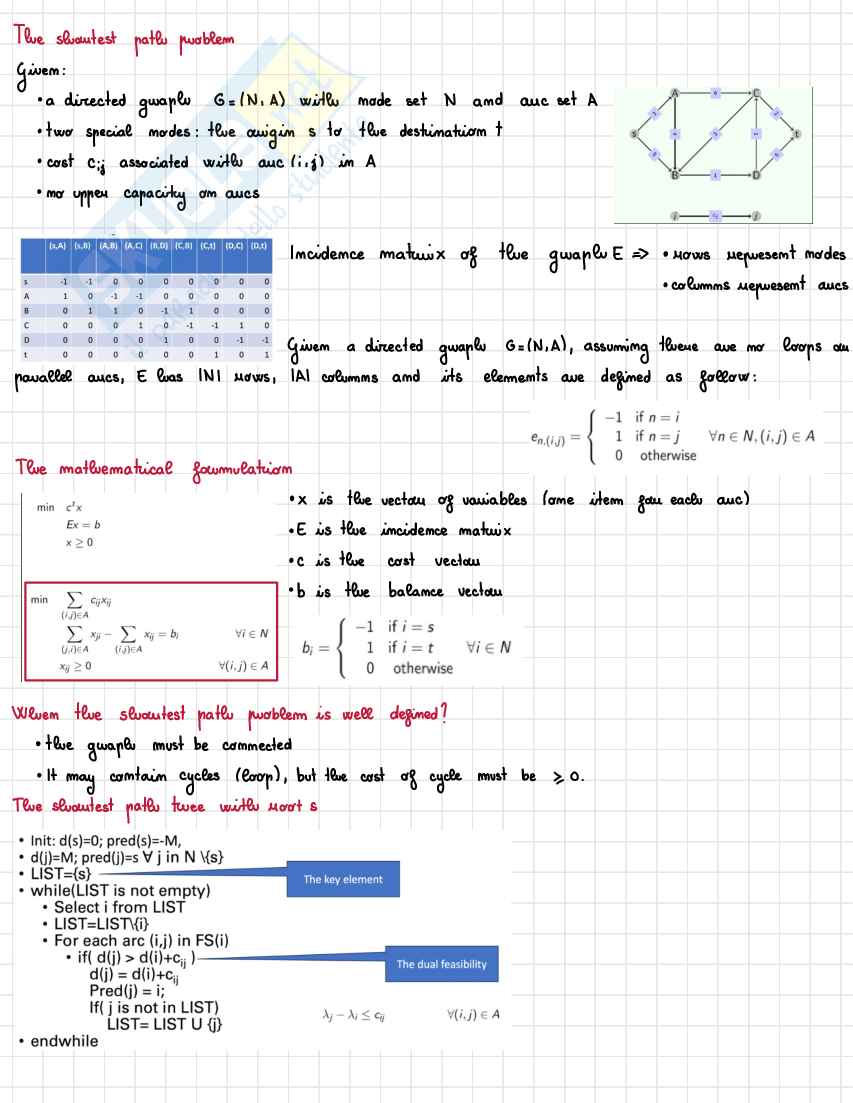 The shortest path problem
Given:
• a directed graph G=(N,A) with node set N and arc set A
• two special nodes: the origin s to the destination t
• cost cij associated with arc (i,j) in A
• no upper capacity on arcs
A
C
s
t
B
D
i
j
(s,A) (s,B) (A,B) (A,C) (B,D) (C,B) (C,t) (D,C) (D,t)
s -1 -1 0 0 0 0 0 0 0
A 1 0 -1 -1 0 0 0 0 0
B 0 1 1 0 -1 1 0 0 0
C 0 0 0 1 0 -1 -1 1 0
D 0 0 0 0 1 0 0 -1 -1
t 0 0 0 0 0 0 1 0 1
Incidence matrix of the graph E => • rows represent nodes
• columns represent arcs
Given a directed graph G=(N,A), assuming there are no loops or
parallel arcs, E has |N| rows, |A| columns and its elements are defined as follow:
e n,(i,j) = { -1 if n = i
1 if n = j ∀n ∈ N, (i,j) ∈ A
0 otherwise
The mathematical formulation
min c'x
Ex = b
x ≥ 0
• x is the vector of variables (one item for each arc)
• E is the incidence matrix
• c is the cost vector
• b is the balance vector
min ∑(i,j)∈A cijxij
∑(j,i)∈A xji − ∑(i,j)∈A xij = bi ∀i ∈ N
xij ≥ 0 ∀(i,j) ∈ A
bi = { -1 if i = s
1 if i = t ∀i ∈ N
0 otherwise
When the shortest path problem is well defined?
• the graph must be connected
• It may contain cycles (loop), but the cost of cycle must be ≥ 0.
The shortest path tree with root s
• Init: d(s)=0; pred(s)=-M,
• d(j)=M; pred(j)=s ∀ j in N \{s}
• LIST={s}
The key element
• while(LIST is not empty)
• Select i from LIST
• LIST=LIST\{i}
• For each arc (i,j) in FS(i)
• if( d(j) > d(i)+cij )
The dual feasibility
d(j) = d(i)+cij
Pred(j) = i;
If( j is not in LIST)
LIST= LIST U {j}
λj − λi ≤ cij ∀(i,j) ∈ A
• endwhile